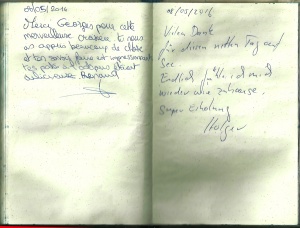 01/05/2014
Merci Georges pour cette
merveilleuse croisière tu nous
as appris beaucoup de chose
et ton savoir faire est impressionnant
tes pates
délicieuse Renaud
08/05/2014
Vielen Dank
für diesen netten Tag auf
See.
Endlich fühle ich mich
wieder wie zuhause.
Super Erholung
Holger